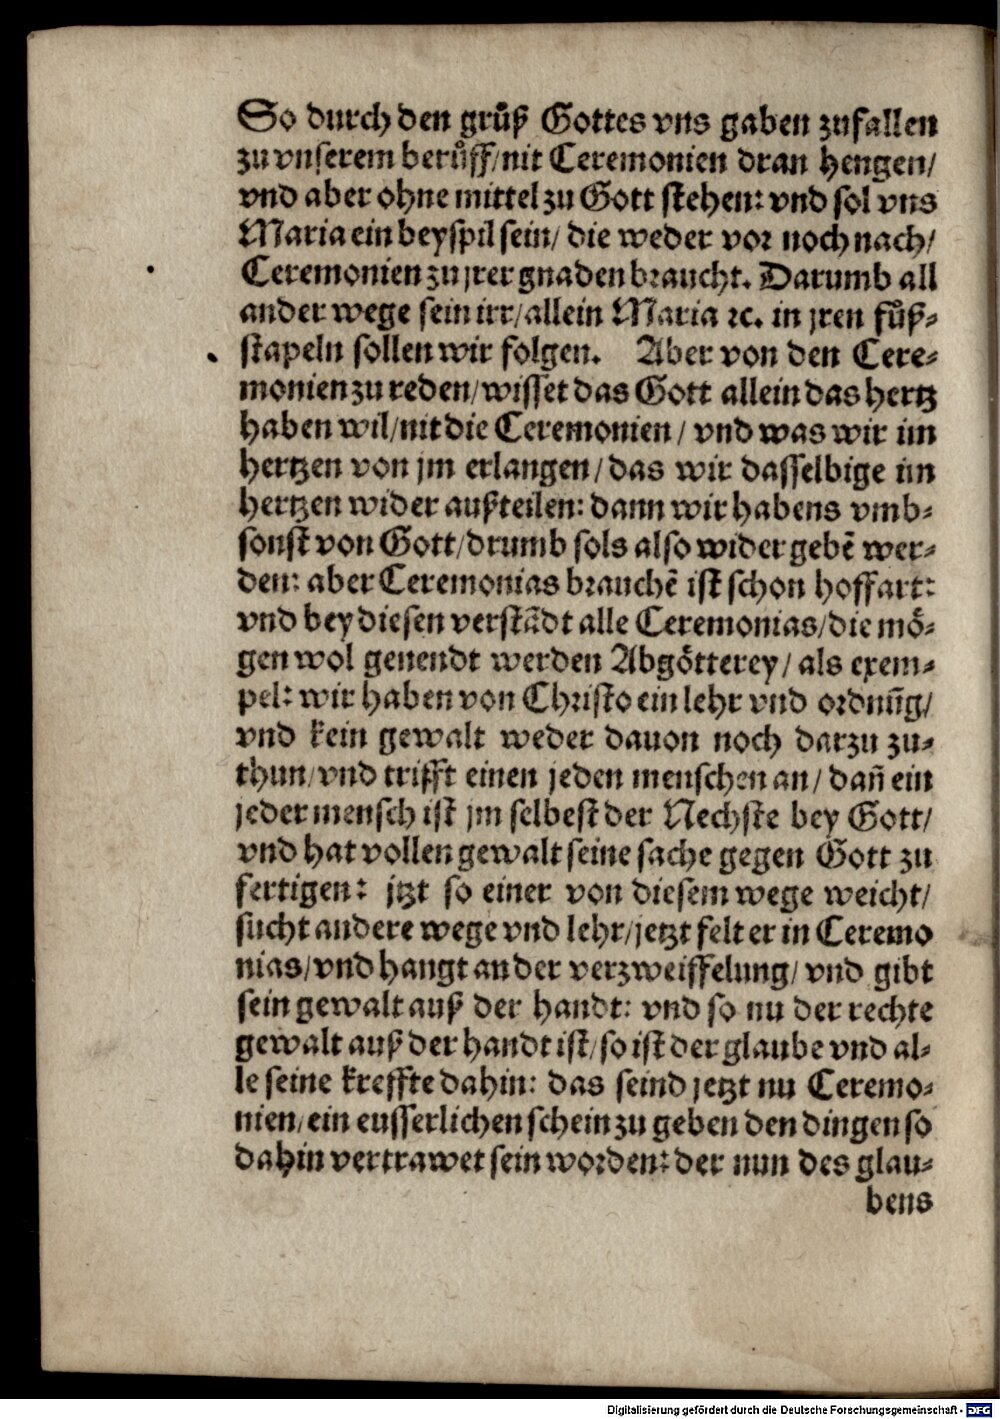 So durch den gruͦß Gottes vns gaben zufallen
zu vnserem beruͦff/nit Ceremonien dran hengen/
vnd aber ohne mittel zu Gott stehen: vnd sol vns
Maria ein beyspil sein/ die weder vor noch nach/
Ceremonien zu jrer gnaden braucht. Darumb all
ander wege sein irr/allein Maria ꝛc. in jren fuͦß-
stapeln sollen wir folgen. Aber von den Cere-
monien zu reden/wisset das Gott allein das hertz
haben wil/nit die Ceremonien/ vnd was wir im
hertzen von jm erlangen/das wir dasselbige im
hertzen wider außteilen: dann wir habens vmb-
sonst von Gott/drumb sols also wider gebẽ wer-
den: aber Ceremonias brauchẽ ist schon hoffart:
vnd bey diesen verstãdt alle Ceremonias/die moͤ-
gen wol genendt werden Abgoͤtterey/ als exem-
pel: wir haben von Christo ein lehr vnd ordnũg/
vnd kein gewalt weder dauon noch darzu zu-
thun/vnd trifft einen jeden menschen an/ dañ ein
jeder mensch ist jm selbest der Nechste bey Gott/
vnd hat vollen gewalt seine sache gegen Gott zu
fertigen: jtzt so einer von diesem wege weicht/
sucht andere wege vnd lehr/jetzt felt er in Ceremo
nias/vnd hangt an der verzweiffelung/ vnd gibt
sein gewalt auß der handt: vnd so nu der rechte
gewalt auß der handt ist/so ist der glaube vnd al-
le seine kreffte dahin: das seind jetzt nu Ceremo-
nien/ein eusserlichen schein zu geben den dingen so
dahin vertrawet sein worden: der nun des glau-
bens
Digitalisierung gefördert durch die Deutsche Forschungsgemeinschaft - DFG